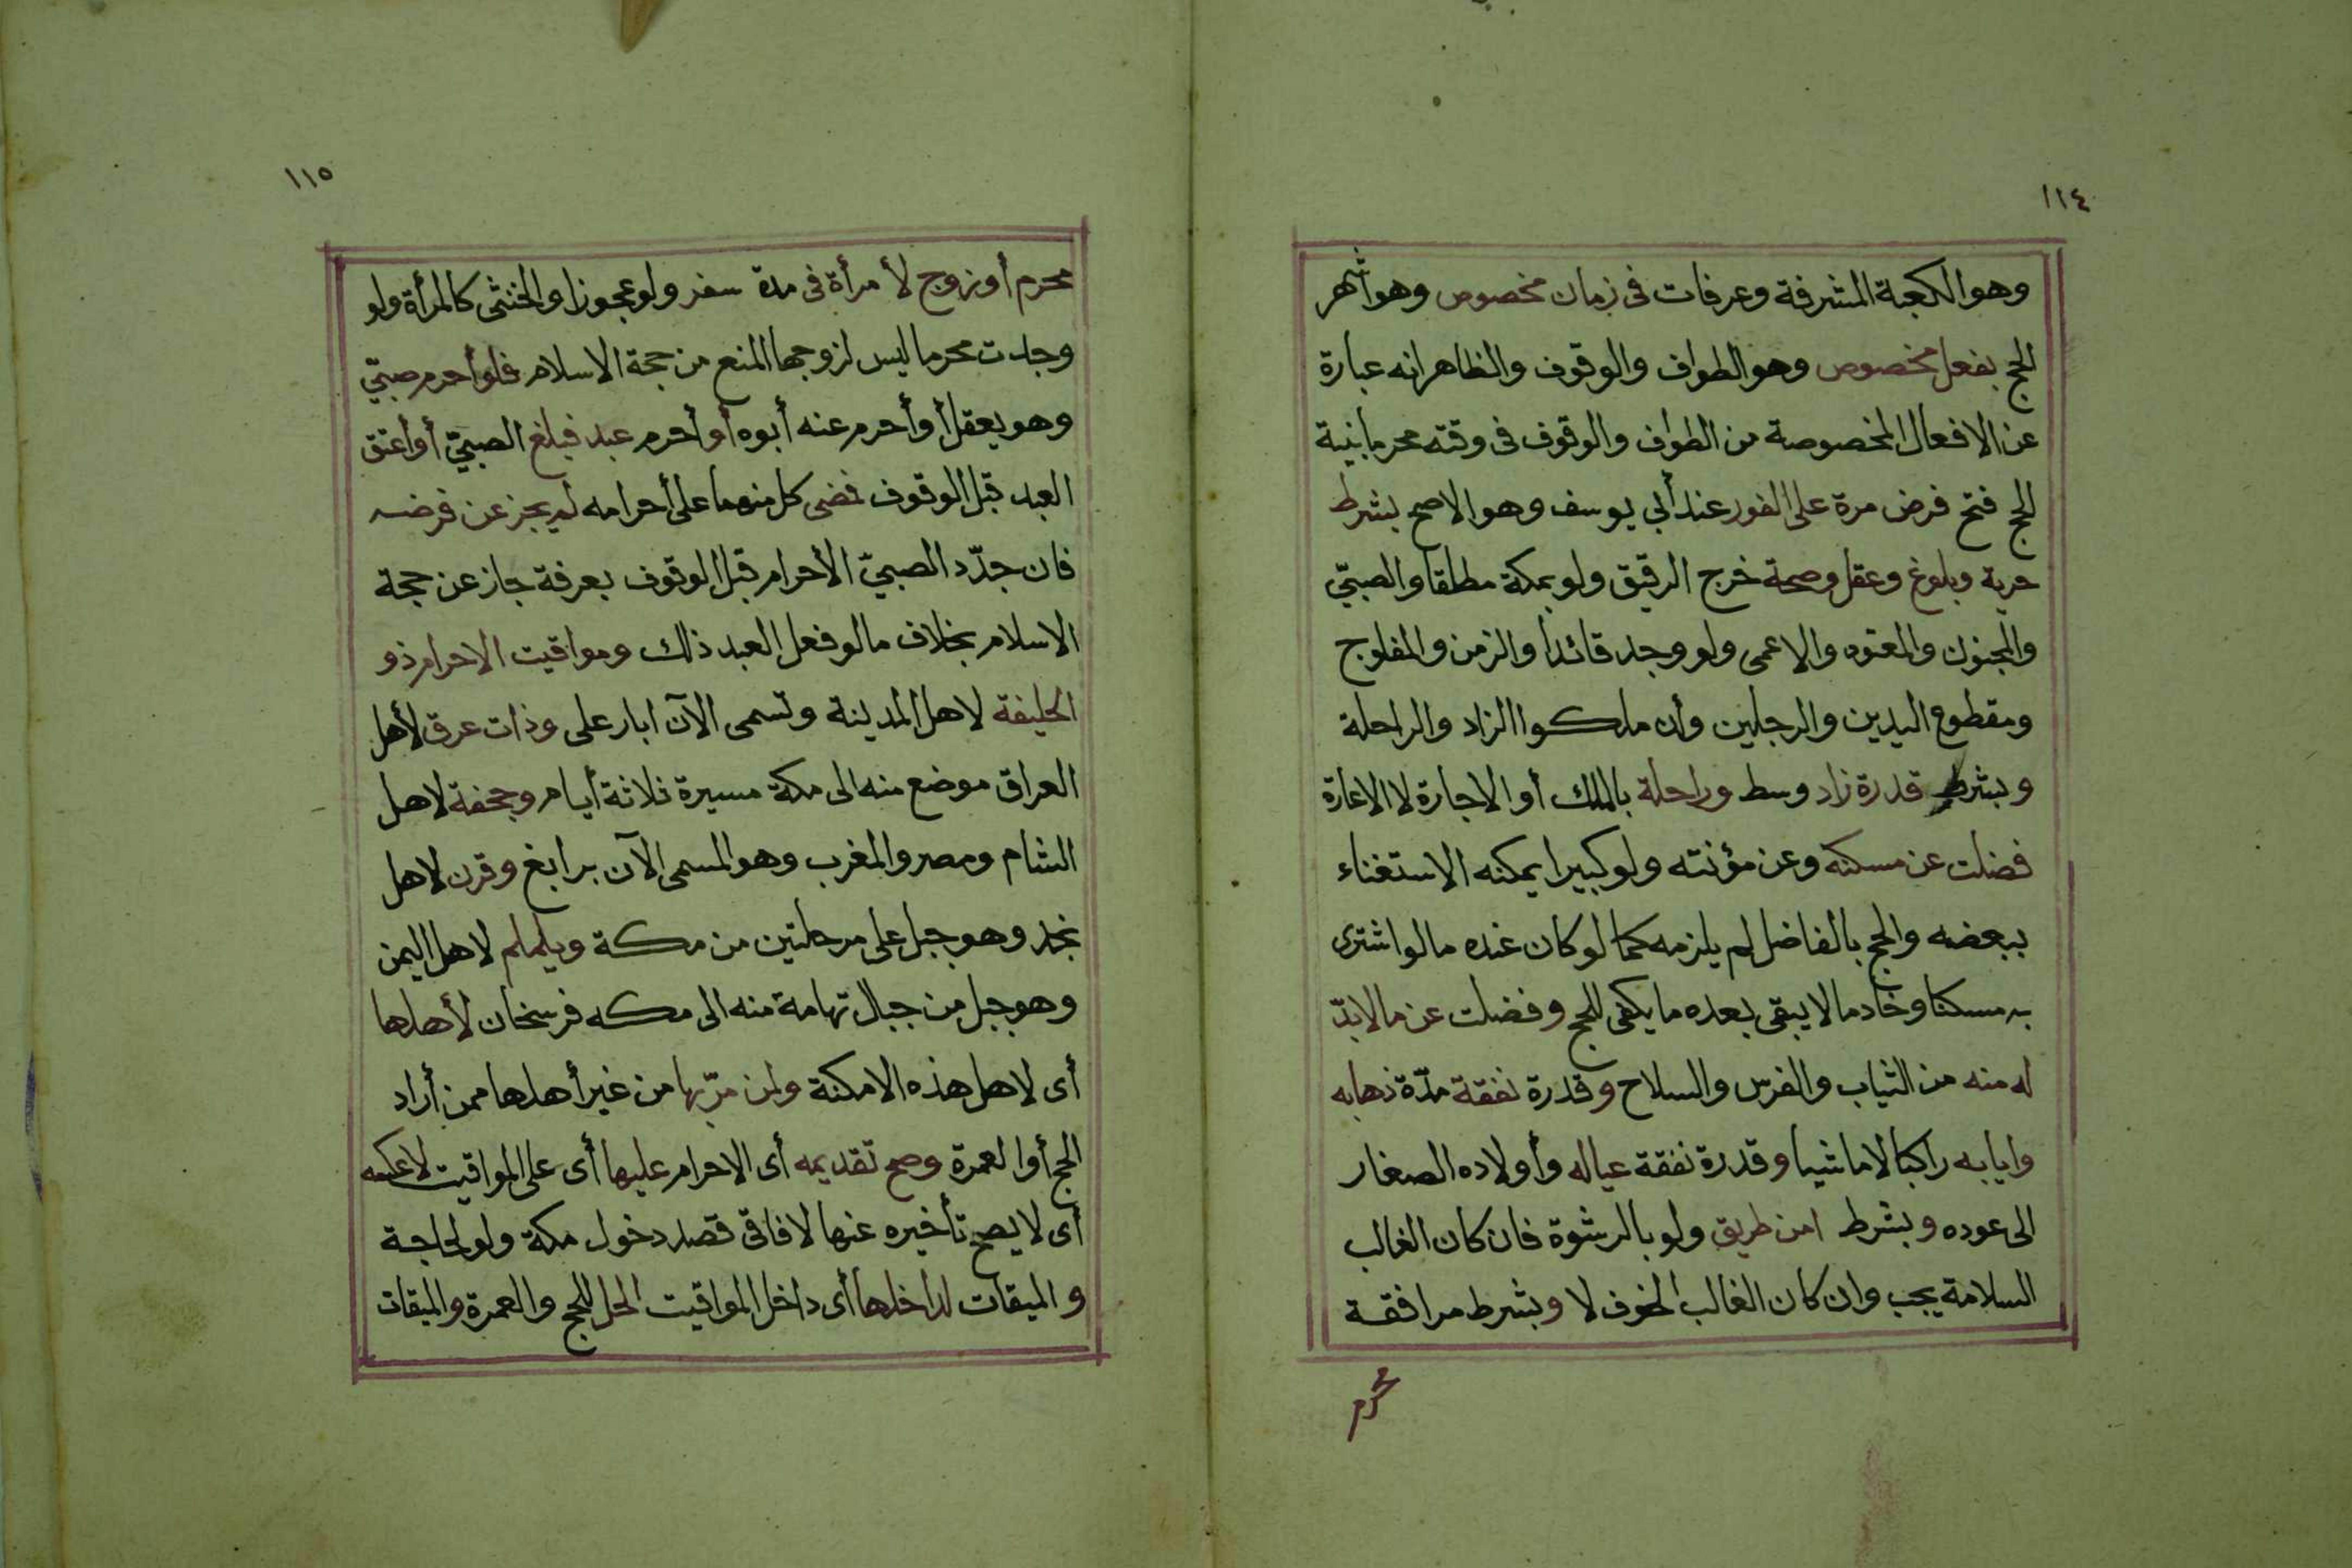 ١١٤
وهو الكعبة المشرفة وعرفات فى زمان مخصوص وهو أشهر
الحج بفعل مخصوص وهو الطواف والوقوف والظاهر انه عبارة
عن الافعال المخصوصة من الطواف والوقوف فى وقته محرما بنية
الحج فتح فرض مرة على الفور عند أبي يوسف وهو الاصح بشرط
حرية وبلوغ وعقل وصحة خرج الرقيق ولو بمكة مطلقا والصبيّ
والمجنون والمعتوه والاعمى ولو وجد قائدا والزمن والمفلوج
ومقطوع اليدين والرجلين وأن ملكوا الزاد والراحلة
وبشرط قدرة زاد وسط وراحلة بالملك أو الاجارة لا الاعارة
فضلت عن مسكنه وعن مؤنته ولو كبيرا يمكنه الاستغناء
ببعضه والحج بالفاضل لم يلزمه كما لو كان عنده ما لو اشترى
به مسكنا وخادما لا يبقى بعده ما يكفى للحج وفضلت عن ما لابدّ
له منه من الثياب والفرس والسلاح وقدرة نفقة مدّة ذهابه
وايابه راكبا لا ماشيا وقدرة نفقة عياله وأولاده الصغار
الى عوده وبشرط امن طريق ولو بالرشوة فان كان الغالب
السلامة يجب وان كان الغالب الخوف لا وبشرط مرافقة
محرم
١١٥
محرم أو زوج لأمرأة فى مدة سفر ولو عجوزا والخنثى كالمرأة ولو
وجدت محرما ليس لزوجها المنع من حجة الاسلام فلو أحرم صبيّ
وهو يعقل أو أحرم عنه أبوه أو أحرم عبد فبلغ الصبيّ أو أعتق
العبد قبل الوقوف فمضى كل منهما على أحرامه لم يجز عن فرضه
فان جدّد الصبيّ الأحرام قبل الوقوف بعرفة جاز عن حجة
الاسلام بخلاف ما لو فعل العبد ذلك ومواقيت الاحرام ذو
الحليفة لاهل المدينة وتسمى الآن ابار على وذات عرق لأهل
العراق موضع منه الى مكة مسيرة ثلاثة أيام وجحفة لاهل
الشام ومصر والمغرب وهو المسمى الآن برابغ وقرن لاهل
نجد وهو جبل على مرحلتين من مكة ويلملم لاهل اليمن
وهو جبل من جبال تهامة منه الى مكه فرسخان لأهلها
أى لاهل هذه الامكنة ولمن مرّ بها من غير أهلها ممن أراد
الحج أو العمرة وصح تقديمه أى الاحرام عليها أى على المواقيت لا عكسه
أى لا يصح تأخيره عنها لافاقى قصد دخول مكة ولو لحاجة
والميقات لداخلها أى داخل المواقيت الحل للحج والعمرة والميقات